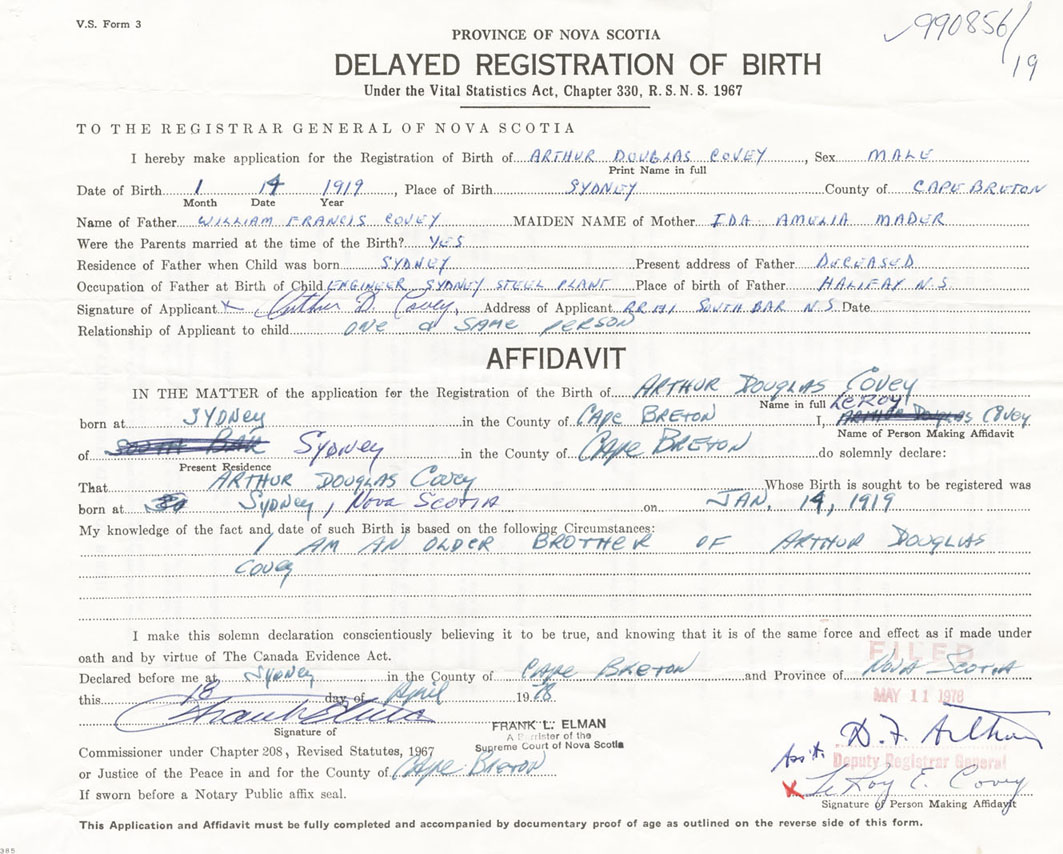 V.S. Form 3
990856/19
PROVINCE OF NOVA SCOTIA
DELAYED REGISTRATION OF BIRTH
Under the Vital Statistics Act, Chapter 330, R.S.N.S. 1967
TO THE REGISTRAR GENERAL OF NOVA SCOTIA
I hereby make application for the Registration of Birth of ARTHUR DOUGLAS COVEY, Sex MALE
Print Name in full
Date of Birth 1 14 1919, Place of Birth SYDNEY County of CAPE BRETON
Month Date Year
Name of Father WILLIAM FRANCIS COVEY MAIDEN NAME of Mother IDA AMELIA MADER
Were the Parents married at the time of the Birth? YES
Residence of Father when Child was born SYDNEY Present address of Father DECEASED
Occupation of Father at Birth of Child ENGINEER SYDNEY STEEL PLANT Place of birth of Father HALIFAX N.S.
Signature of Applicant x Arthur D. Covey, Address of Applicant RR#1 SOUTH BAR N.S. Date
Relationship of Applicant to child ONE & SAME PERSON
AFFIDAVIT
IN THE MATTER of the application for the Registration of the Birth of ARTHUR DOUGLAS COVEY
Name in full
born at SYDNEY in the County of CAPE BRETON I, LEROY Covey
Name of Person Making Affidavit
of Sydney in the County of CAPE BRETON do solemnly declare:
Present Residence
That ARTHUR DOUGLAS COVEY Whose Birth is sought to be registered was
born at Sydney, Nova Scotia on JAN. 14, 1919
My knowledge of the fact and date of such Birth is based on the following Circumstances:
I AM AN OLDER BROTHER OF ARTHUR DOUGLAS
COVEY
I make this solemn declaration conscientiously believing it to be true, and knowing that it is of the same force and effect as if made under
oath and by virtue of The Canada Evidence Act.
FILED
Declared before me at Sydney in the County of CAPE BRETON and Province of NOVA SCOTIA
this 18 day of April 1978
MAY 11 1978
Frank L. Elman
Signature of
FRANK L. ELMAN
A Barrister of the
Supreme Court of Nova Scotia
D.F. Arthur
Ass't. Deputy Registrar General
Commissioner under Chapter 208, Revised Statutes, 1967
or Justice of the Peace in and for the County of Cape Breton
x LeRoy E. Covey
If sworn before a Notary Public affix seal.
Signature of Person Making Affidavit
This Application and Affidavit must be fully completed and accompanied by documentary proof of age as outlined on the reverse side of this form.
385